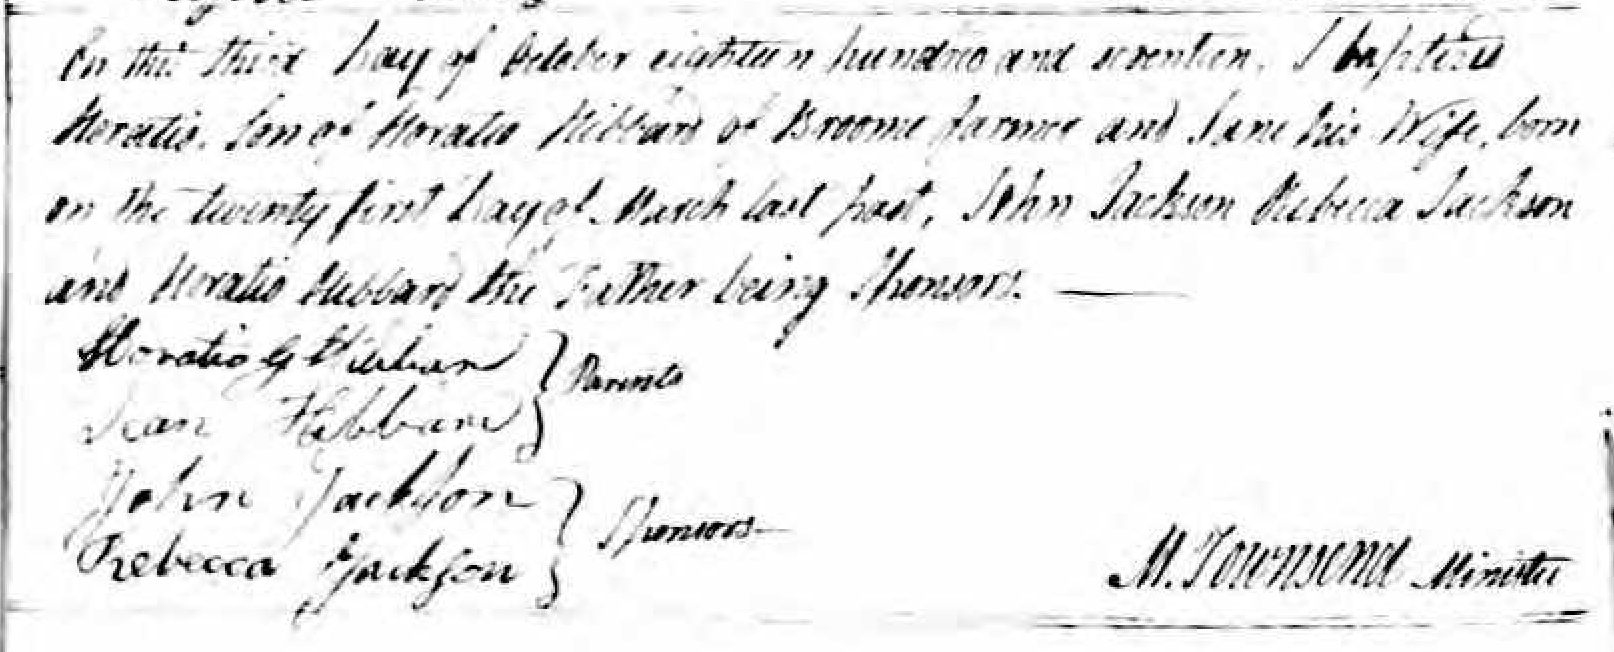 On this third day of October eighteen hundred and seventeen, I baptized
Horatio, Son of Horatio Hibbard of Broome farmer and Jane his Wife, born
on the twenty first day of March last past, John Jackson Rebecca Jackson
and Horatio Hebbard the Father being Sponsors.
Horatio G Hibbard } Parents
Jean Hibbard
John Jackson } Sponsors
Rebecca Jackson
M. Townsend Minister